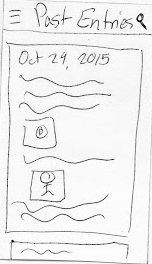 Past Entries
Oct 29, 2015